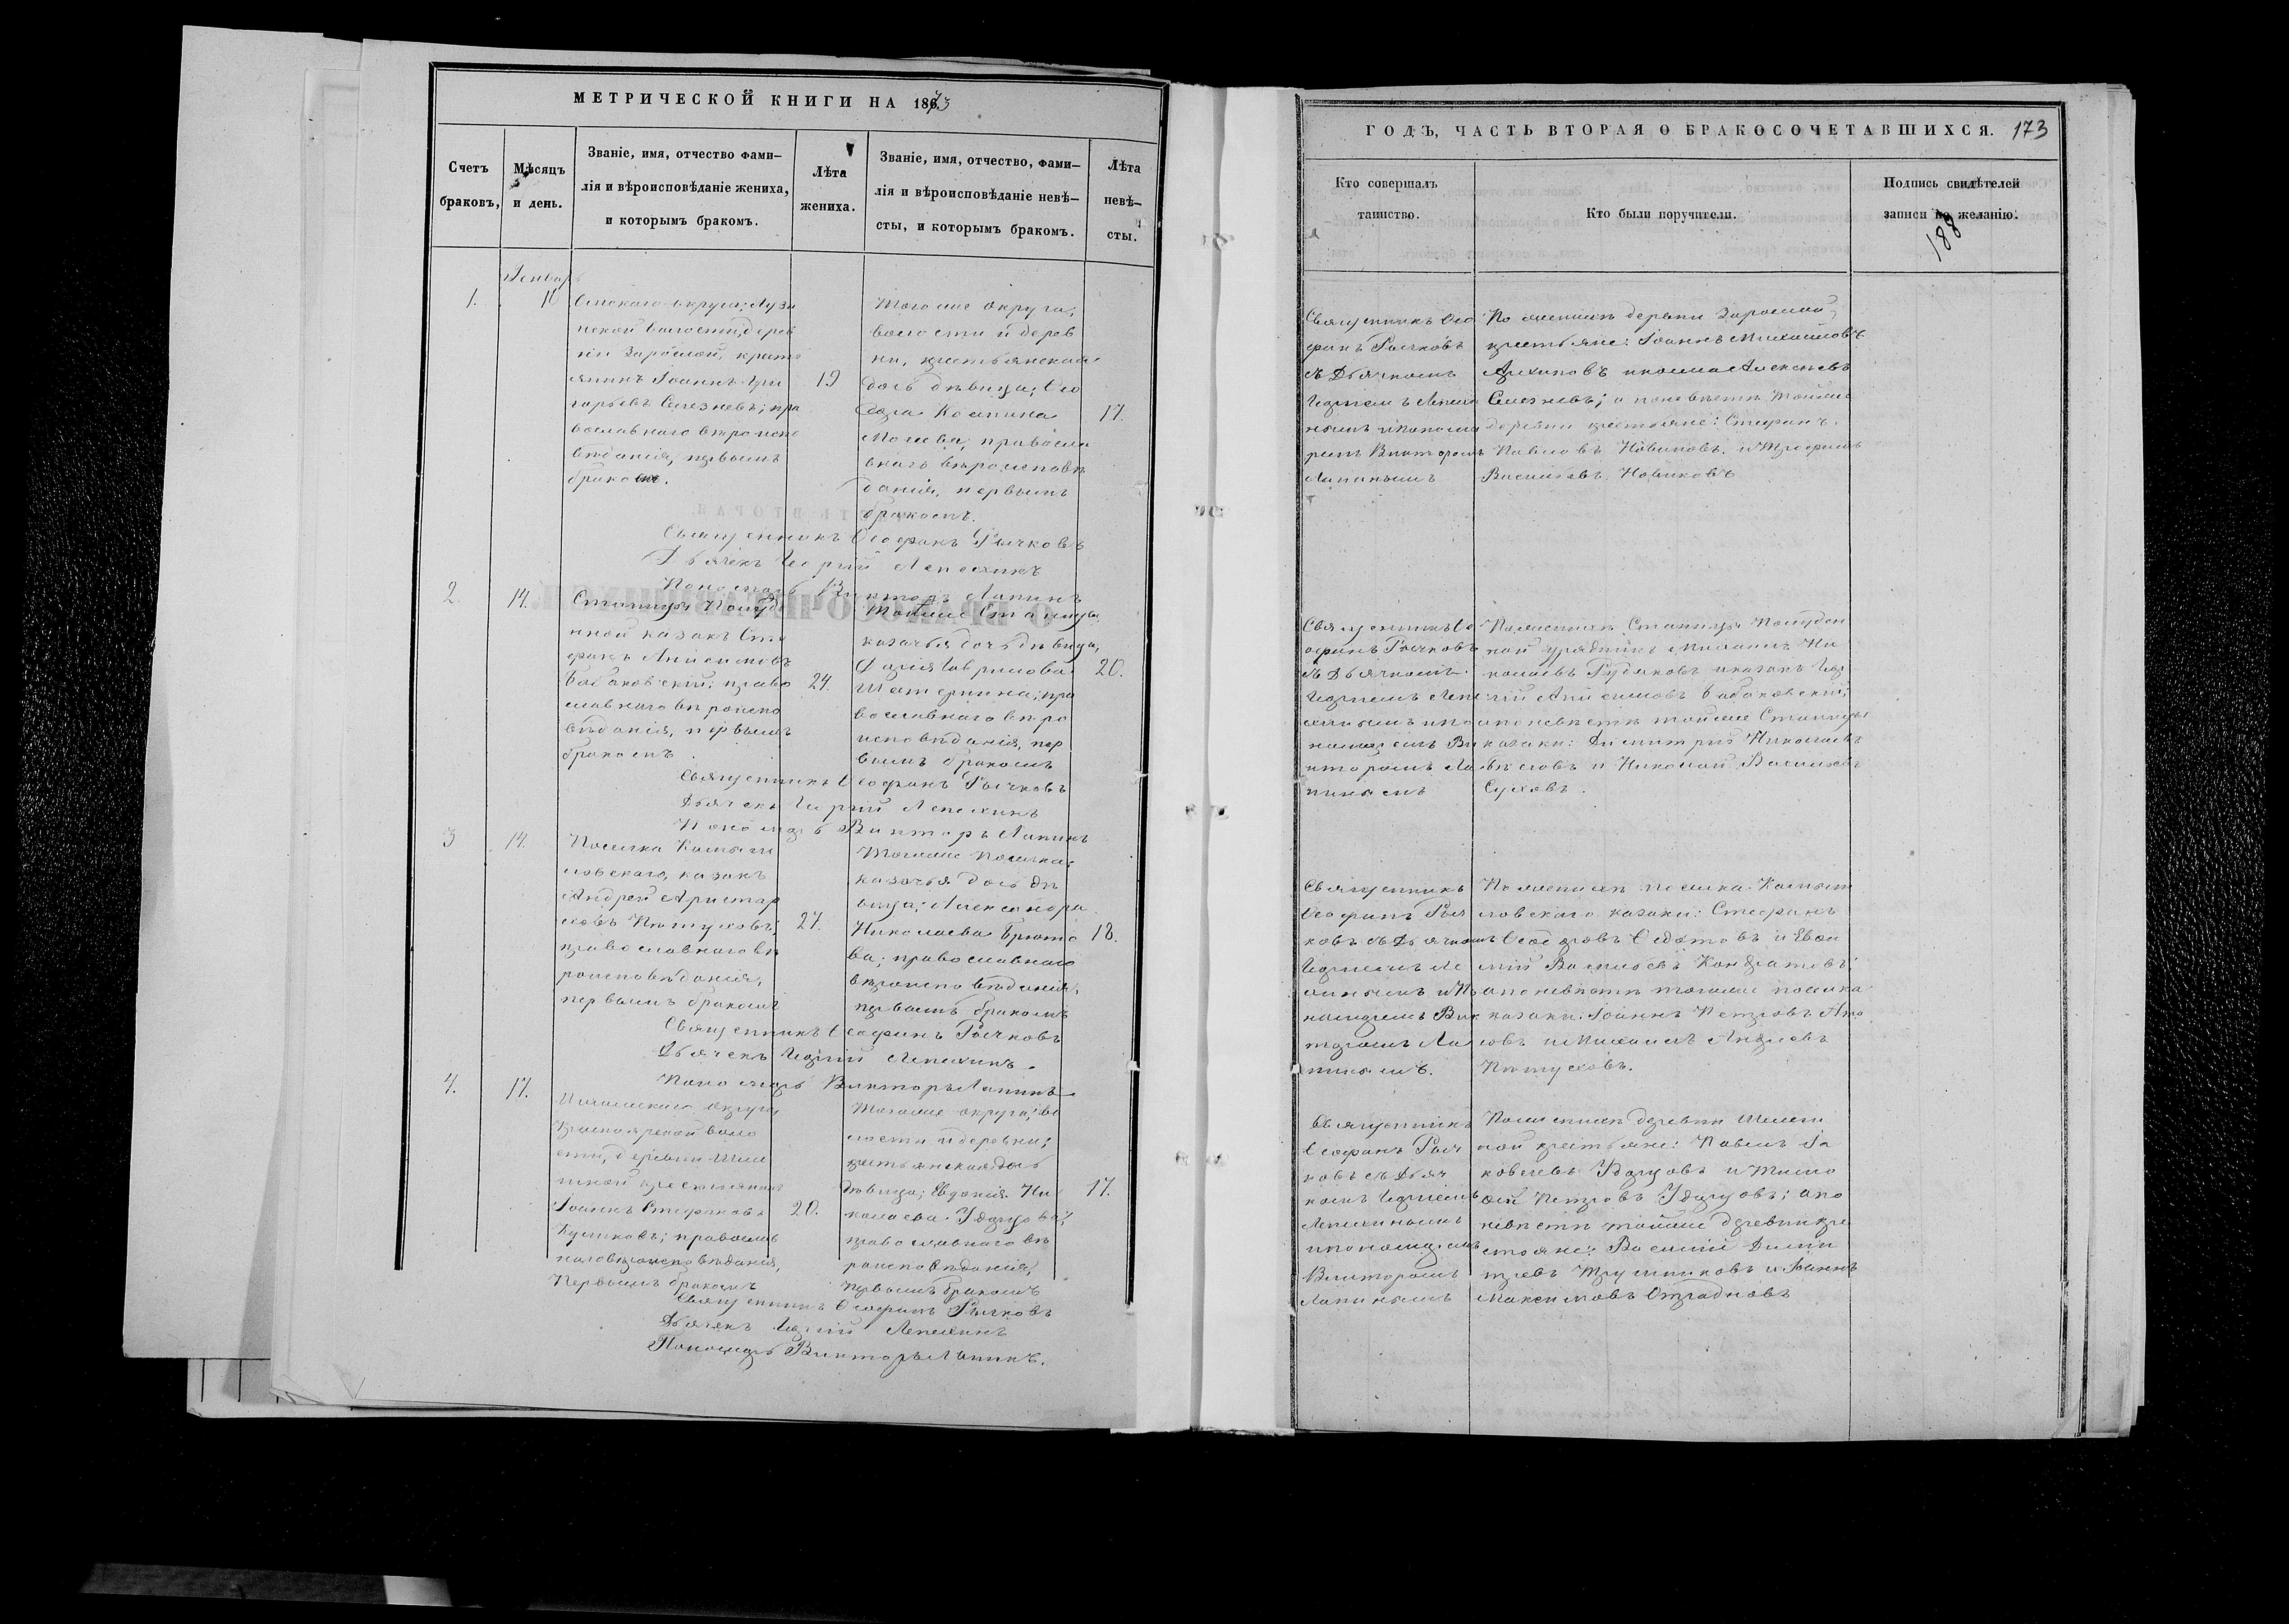 МЕТРИЧЕСКОЙ КНИГИ НА 1873
Счетъ
браковъ,
Мѣсяцъ
и день.
Званіе, имя, отчество фами-
лія и вѣроисповѣданіе жениха,
и которымъ бракомъ.
Лѣта
жениха.
Званіе, имя, отчество, фами-
лія и вѣроисповѣданіе невѣ-
сты, и которымъ бракомъ.
Лѣта
невѣ-
сты.
Генварь
1.
10
Омскаго округа, Лузи
нской волости, дерев
ни Зарослой, кресть
янинъ Іоаннъ Гри
горьевъ Селезневъ; пра
вославнаго вѣроиспо
вѣданія, первымъ
бракомъ.
19
Тогоже округа,
волости и дерев
ни, крестьянская
дочь дѣвица, Ѳео
дора Космина
православ
наго вѣроисповѣ
данія, первымъ
бракомъ.
17.
Священникъ Ѳеофанъ Рычковъ
Дьячекъ Георгій Лепехинъ
Пономарь Викторъ Лапинъ
2.
14.
Станицы Полуде
нной казакъ Сте
фанъ Анисимовъ
Бабаковскій; право
славнаго вѣроиспо
вѣданія, первымъ
бракомъ
24.
Тойже Станицы
казачья дочь дѣвица,
Гаврилова
православнаго вѣро
исповѣданія, пер
вымъ бракомъ
20.
Священникъ Ѳеофанъ Рычковъ
Дьячекъ Георгій Лепехинъ
Пономарь Викторъ Лапинъ
3
14.
Поселка Камыш
ловскаго, казакъ
Андрей Аристар
ховъ Пѣтуховъ;
православнаго вѣ
роисповѣданія,
первымъ бракомъ
27.
Тогоже поселка;
казачья дочь дѣ
вица; Александра
Николаева
ва; православнаго
вѣроисповѣданія,
первымъ бракомъ
18.
Священникъ Ѳеофанъ Рычковъ
Дьячекъ Георгій Лепехинъ
Пономарь Викторъ Лапинъ
4.
17.
Ишимскаго Округа
Красноярской воло
сти, деревни
крестьянинъ
Іоаннъ Стефановъ
Куликовъ; православ
наго вѣроисповѣданія,
Первымъ бракомъ
20.
Тогоже округа, во
лости и деревни;
крестьянская дочь
дѣвица; Евдокія Ни
колаева Ударцова;
православнаго вѣ
роисповѣданія,
первымъ бракомъ
17.
Священникъ Ѳеофанъ Рычковъ
Дьячекъ Георгій Лепехинъ
Пономарь Викторъ Лапинъ.
ГОДЪ, ЧАСТЬ ВТОРАЯ О БРАКОСОЧЕТАВШИХСЯ. 173
Кто совершалъ
таинство.
Кто были поручители.
Подпись свидѣтелей
записи по желанію.
188
Священникъ Ѳео
фанъ Рычковъ
съ Дьячкомъ
Георгіемъ Лепехи
нымъ и Понома
ремъ Викторомъ
Лапинымъ
По женихѣ деревни Зарослой,
крестьяне: Іоаннъ Михайловъ
Архиповъ и Алексѣевъ
Селезневъ; а по невѣстѣ тойже
деревни крестьяне: Стефанъ
Павловъ Новиковъ и Трофимъ
Васильевъ Новиковъ
Священникъ Ѳе
офанъ Рычковъ
съ Дьячкомъ
Георгіемъ Лепе
хинымъ и по
номаремъ Ви
кторомъ Ла
пинымъ
По женихѣ Станицы Полуден
ной урядникъ Михаилъ Ни
колаевъ и казакъ Геор
гій Анисимовъ Бабаковскій;
а по невѣстѣ тойже Станицы
казаки: Димитрій Николаевъ
и Николай Васильевъ
Суховъ.
Священникъ
Ѳеофанъ Рыч
ковъ съ Дьячкомъ
Георгіемъ Ле
хинымъ и По
номаремъ Вик
торомъ Ла
пинымъ.
По женихѣ поселка Камыш
ловскаго казаки: Стефанъ
Ѳеодоровъ Ѳедотовъ и Евѳи
мій Васильевъ Кондратовъ;
а по невѣстѣ тогоже поселка
казаки: Іоаннъ Петровъ
и Михаилъ Андреевъ
Пѣтуховъ.
Священникъ
Ѳеофанъ Рыч
ковъ съ Дьяч
комъ Георгіемъ
Лепехинымъ
и пономаремъ
Викторомъ
Лапинымъ
По женихѣ деревни
крестьяне: Павелъ Іа
ковлевъ Ударцовъ и Тимо
ѳей Петровъ Ударцовъ; а по
невѣстѣ тойже деревни кре
стьяне: Василій Дими
тріевъ и Іоаннъ
Максимовъ Отрадновъ